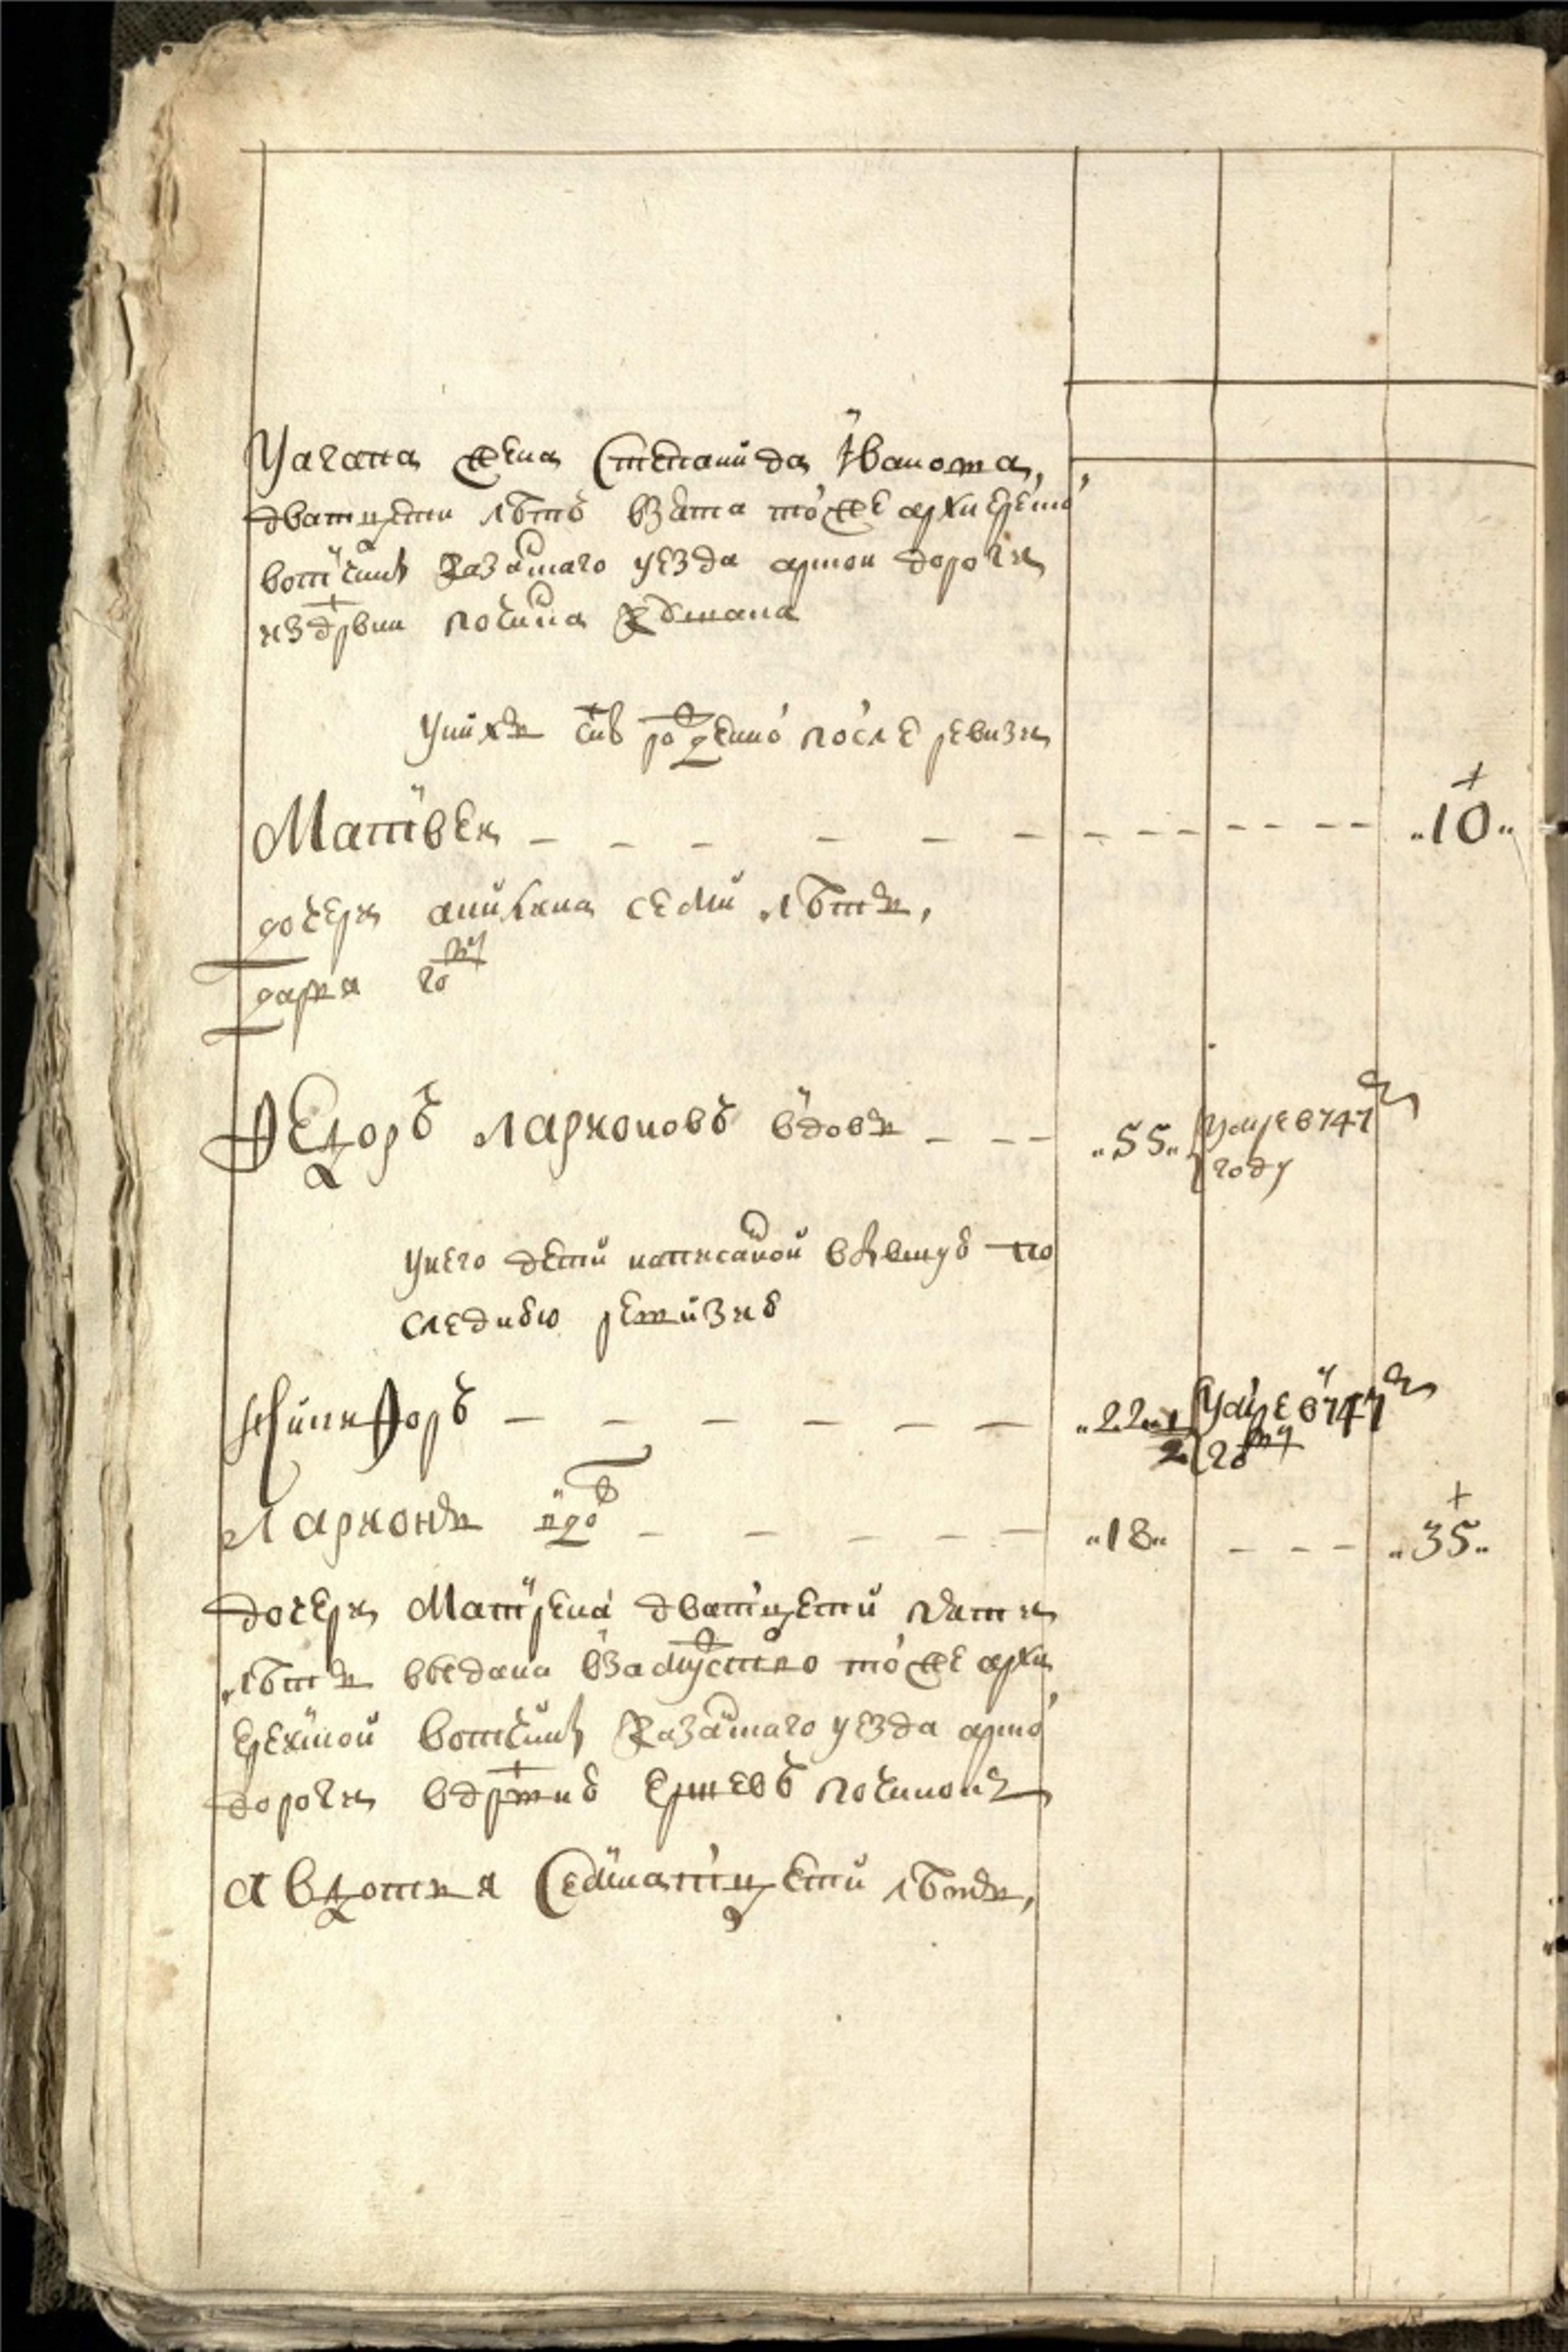 Уагапа жена Степанида Иванова,
дватцети летъ взята тоже архиерейско
вотчины Казанъского уезда арской дороги
из дрвни почина
У них снъ рожденно после ревизи
Матвеи - - - - - - - - - - - - - ..10..
дочери аникина семи летъ,
дарья году
Ѳедоръ ларионовъ вдовъ - - - ..55.. умре в 747
году
У него дети написаной в бывшую по
следнюю ревизию
Никифоръ - - - - - - ..22 1/2 умре в 747
году
Ларионъ - - - - - ..18.. - - - ..35..
дочери Матрена дватцети пяти
летъ выдана взамуство тоже архи
ерейской вотчины Казанского уезда арско
дороги в дрвню Ершевъ починокъ
авдотья Семнатцети летъ,